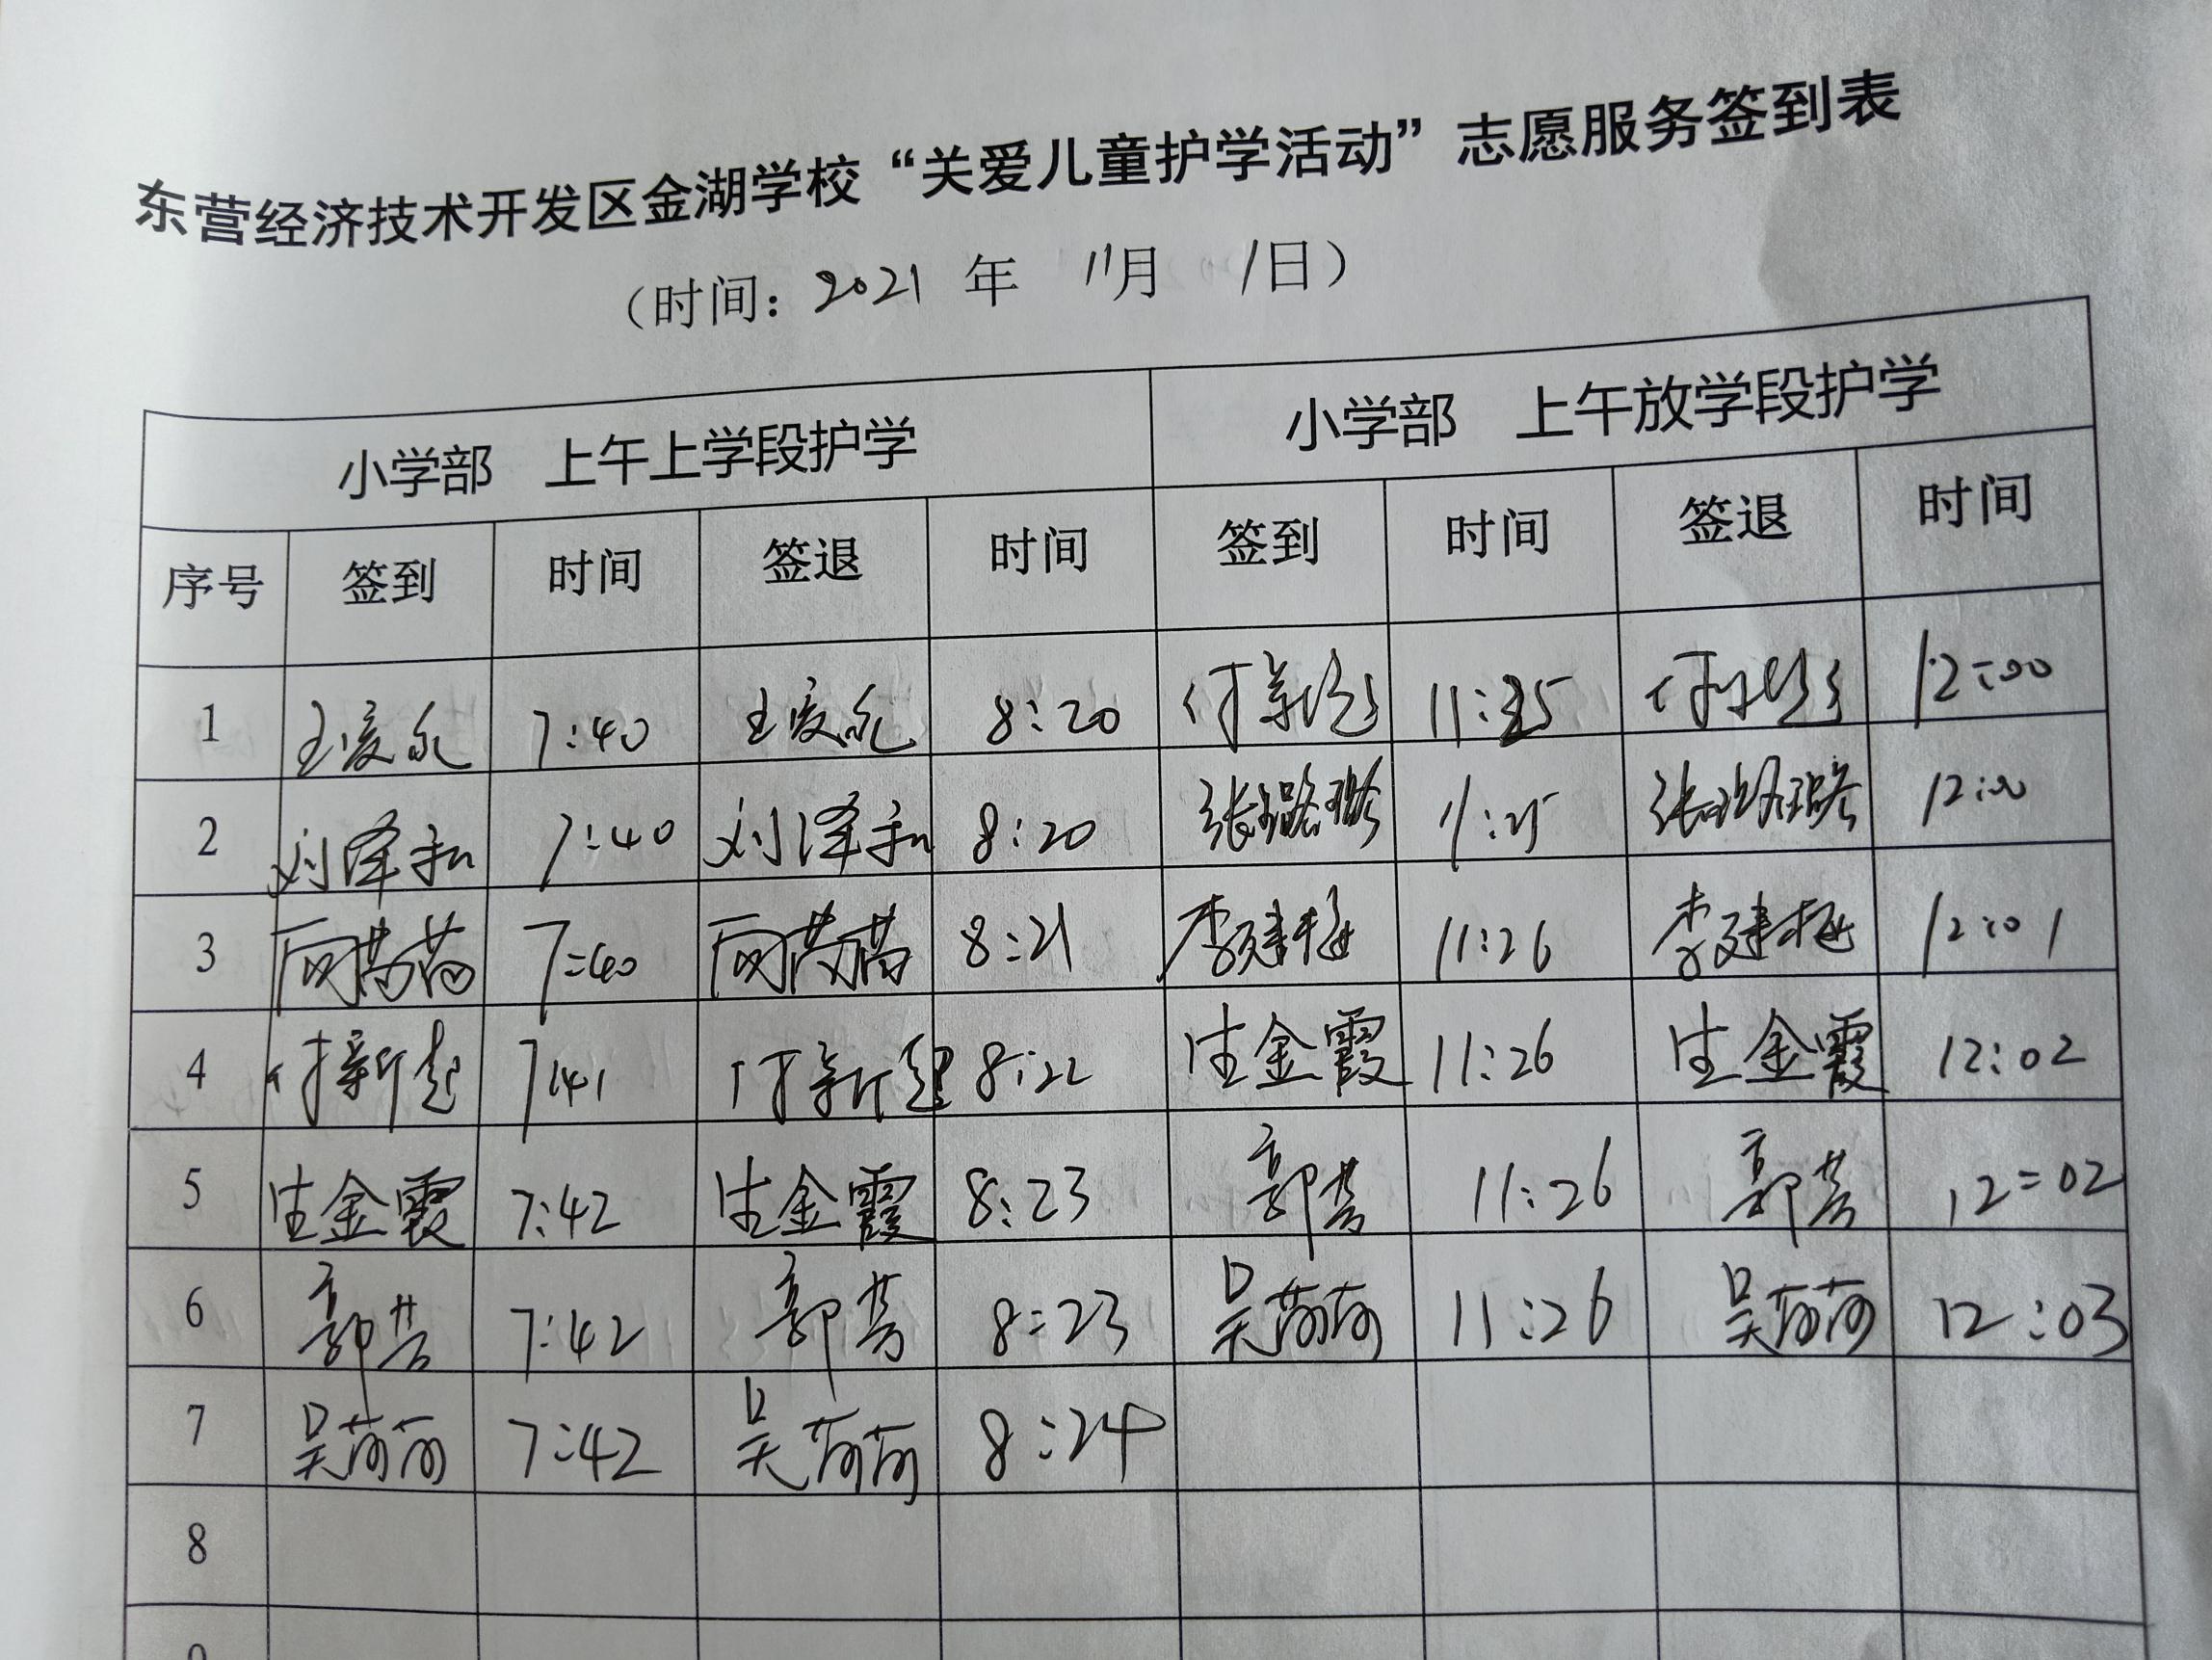 东营经济技术开发区金湖学校“关爱儿童护学活动”志愿服务签到表
（时间：2021 年 11月 1日）
小学部 上午上学段护学 小学部 上午放学段护学
序号 签到 时间 签退 时间 签到 时间 签退 时间
1 7:40 8:20 11:25 12:00
2 刘泽和 7:40 刘泽和 8:20 张璐璐 11:25 张璐璐 12:00
3 7:40 8:21 李建梅 11:26 李建梅 12:01
4 付新起 7:41 付新起 8:22 生金霞 11:26 生金霞 12:02
5 生金霞 7:42 生金霞 8:23 郭芳 11:26 郭芳 12:02
6 郭芳 7:42 郭芳 8:23 吴荷荷 11:26 吴荷荷 12:03
7 吴荷荷 7:42 吴荷荷 8:24
8